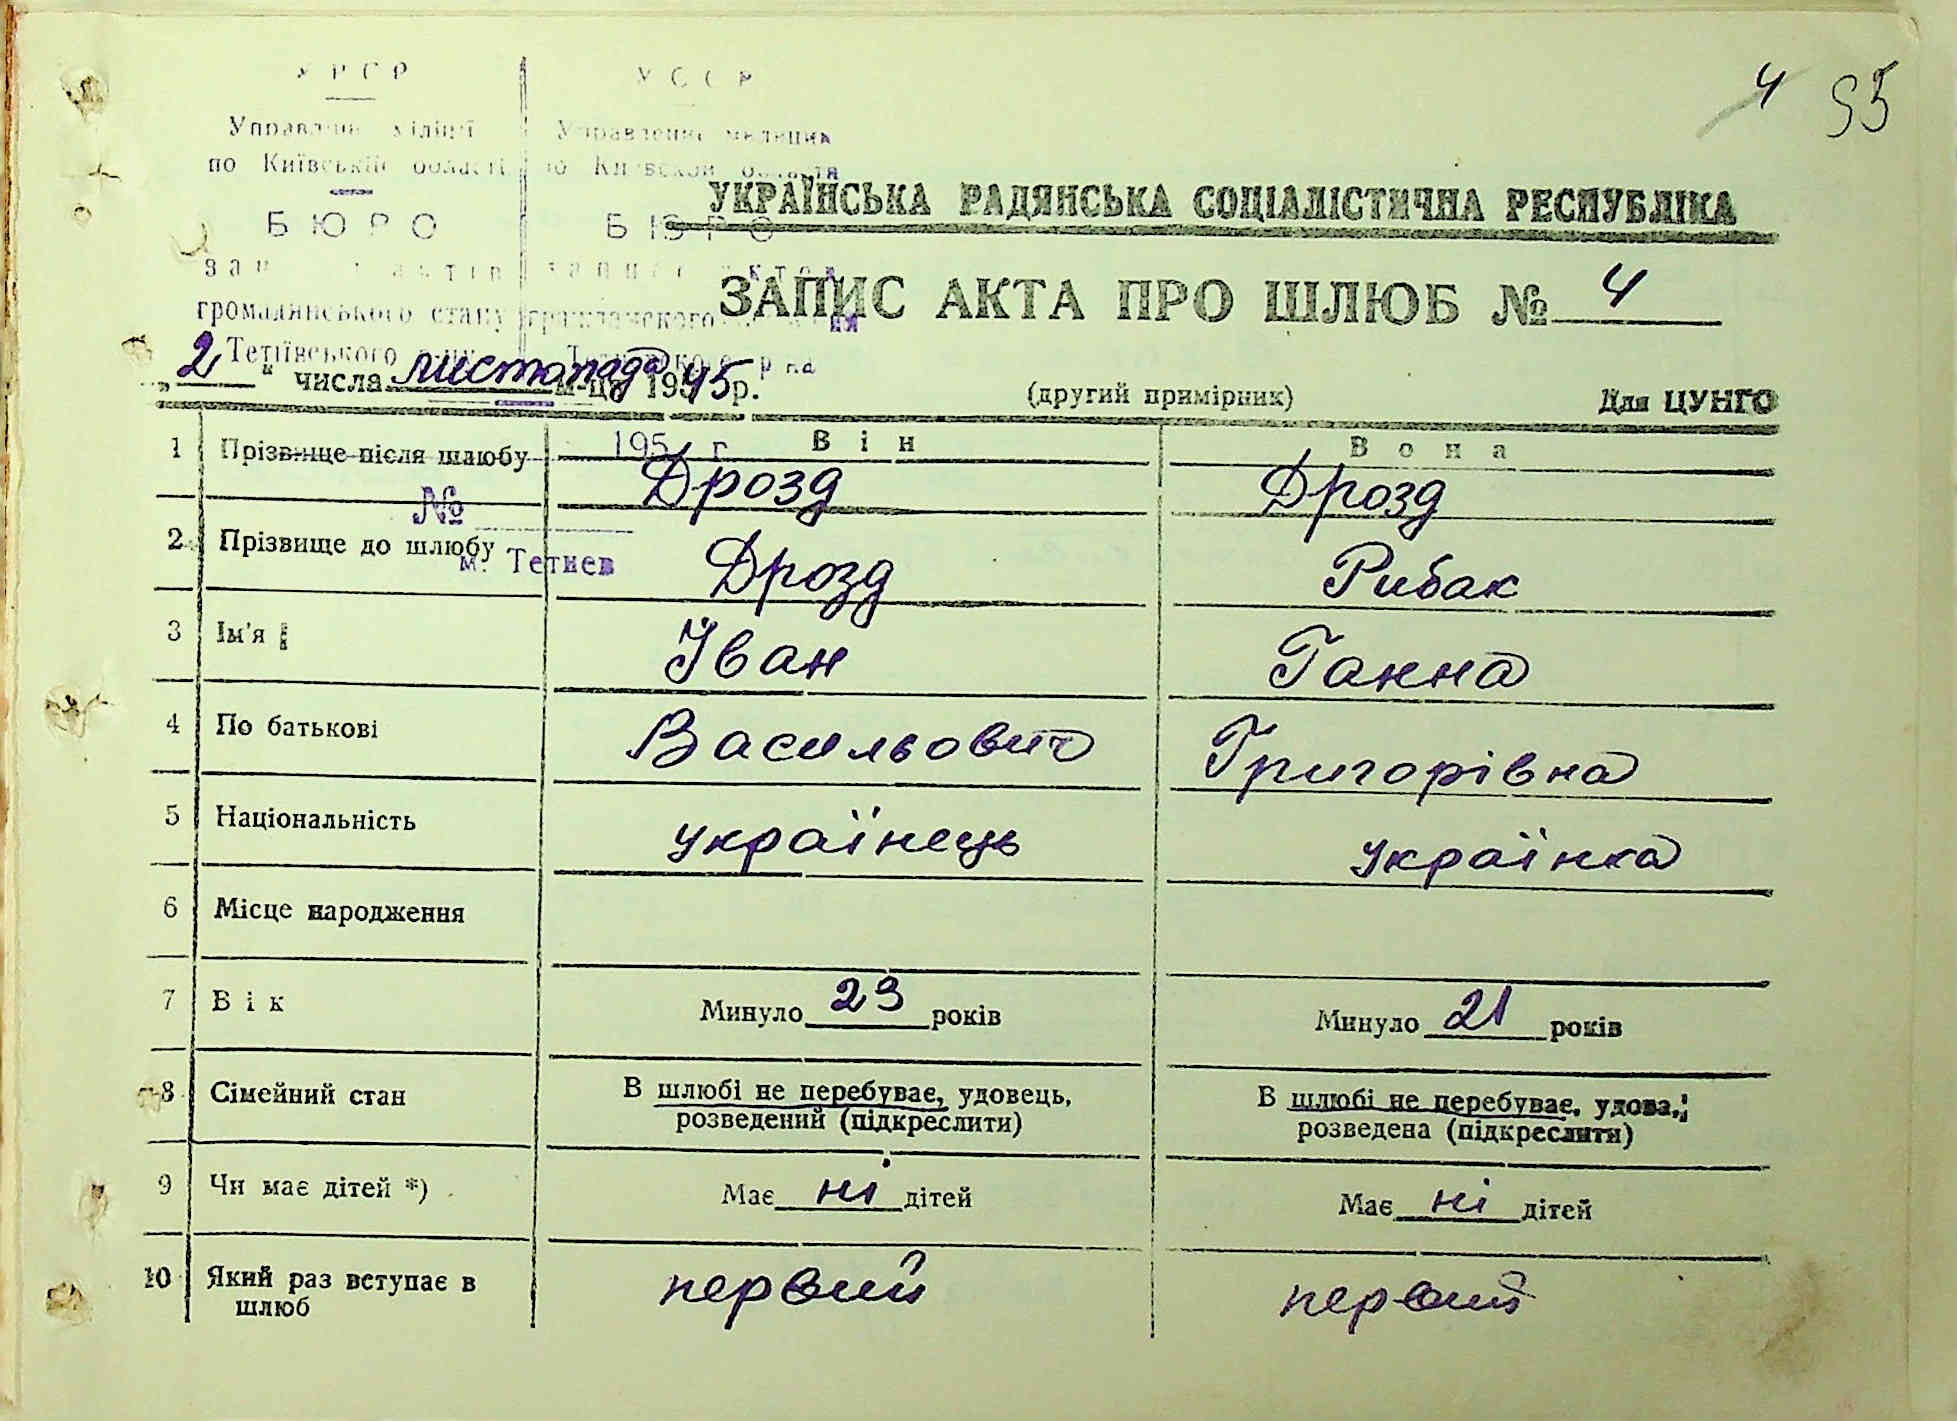 УРСР
УССР
4 95
Управління міліції
Управление милиции
по Київській області
по Киевской области
УКРАЇНСЬКА РАДЯНСЬКА СОЦІАЛІСТИЧНА РЕСПУБЛІКА
БЮРО
БЮРО
запису актів
записи актов
ЗАПИС АКТА ПРО ШЛЮБ № 4
громадянського стану
гражданского
Тетіївського
„2“ числа листопада м-ця 1945 р.
(другий примірник)
Для ЦУНГО
195 г.
Він
Вона
1 Прізвище після шлюбу Дрозд Дрозд
№
2 Прізвище до шлюбу Дрозд Рибак
м. Тетиев
3 Ім'я Іван Ганна
4 По батькові Васильович Григорівна
5 Національність українець українка
6 Місце народження
7 Вік Минуло 23 років Минуло 21 років
8 Сімейний стан В шлюбі не перебуває, удовець, розведений (підкреслити) В шлюбі не перебуває, удова, розведена (підкреслити)
9 Чи має дітей *) Має ні дітей Має ні дітей
10 Який раз вступає в шлюб первий первий